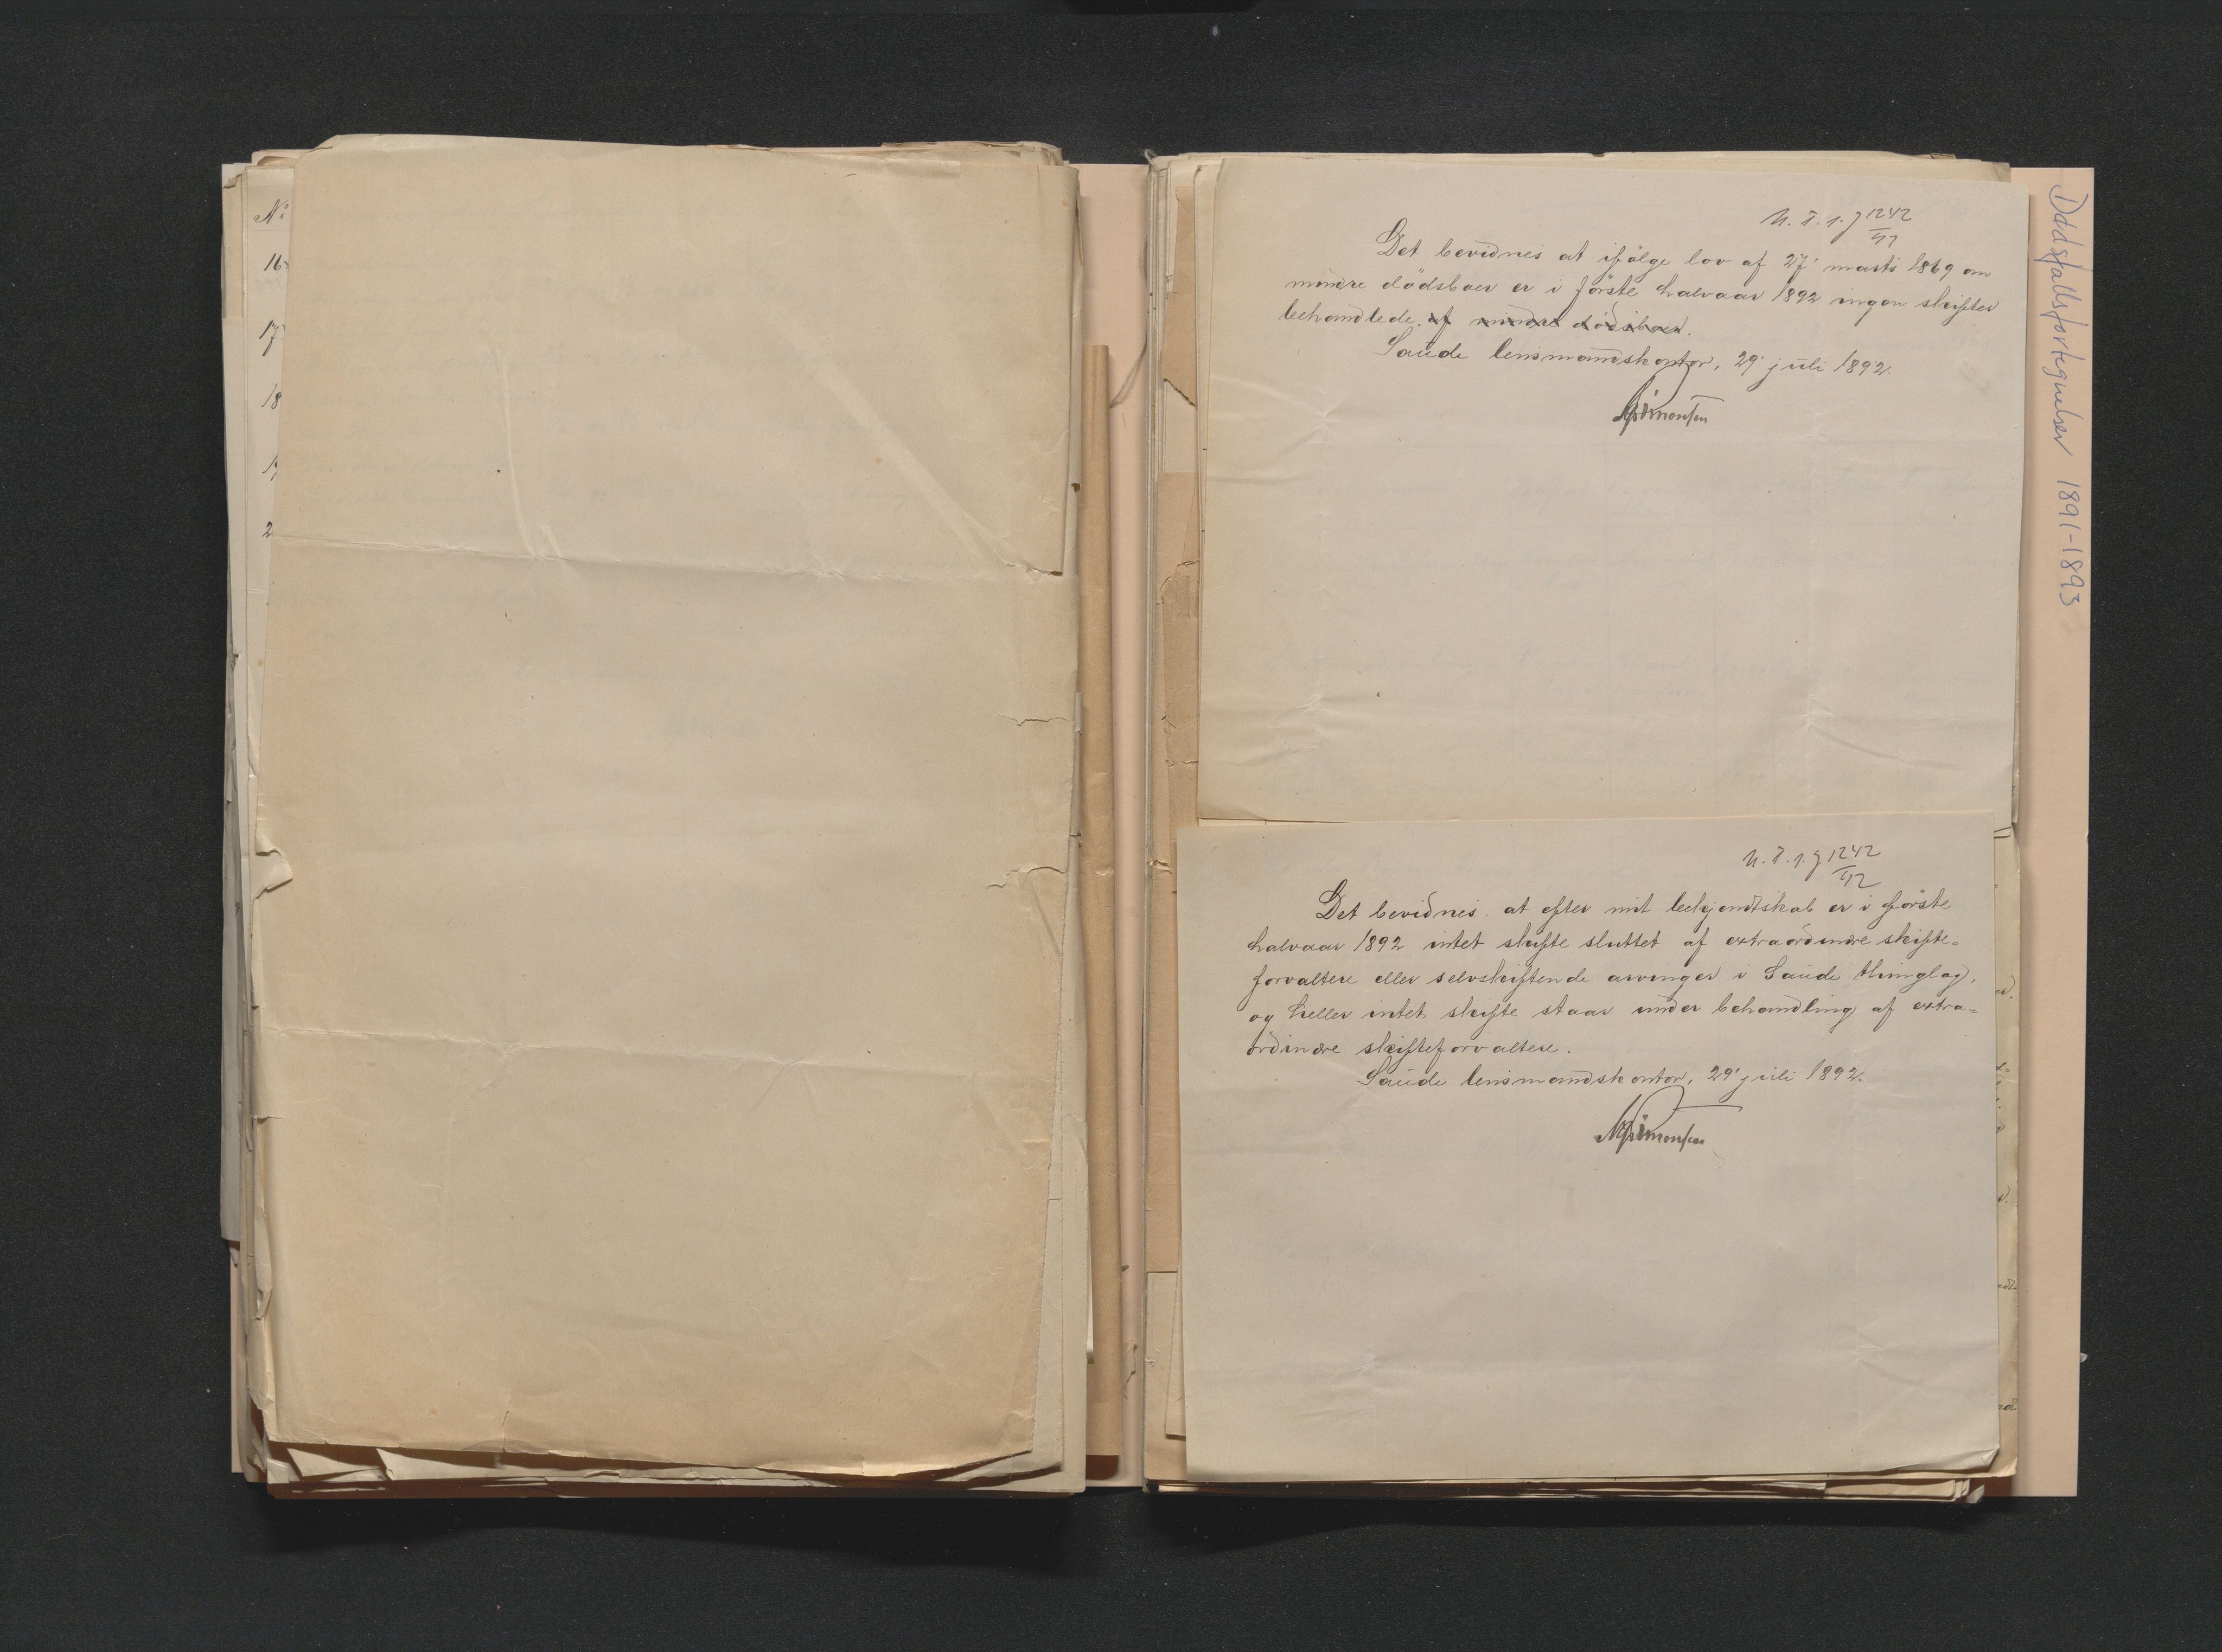 No
16
17
18
19
2
N. T. 1. J 1242/92
Det bevidnes at ifölge lov af 27' marts 1869 om
mindre dödsboer er i förste halvaar 1892 ingen skifter
behandlede. af mindre dödsboer.
Saude lensmandskontor, 29' juli 1892.
N. T. 1. J 1242/92
Det bevidnes at efter mit bekjendtskab er i förste
halvaar 1892 intet skifte sluttet af extraordinære skifte=
forvaltere eller selvskiftende arvinger i Saude thinglag,
og heller intet skifte staar under behandling af extra=
ordinære skifteforvaltere.
Saude lensmandskontor, 29' juli 1892.
Dödsfallsfortegnelser 1891-1893